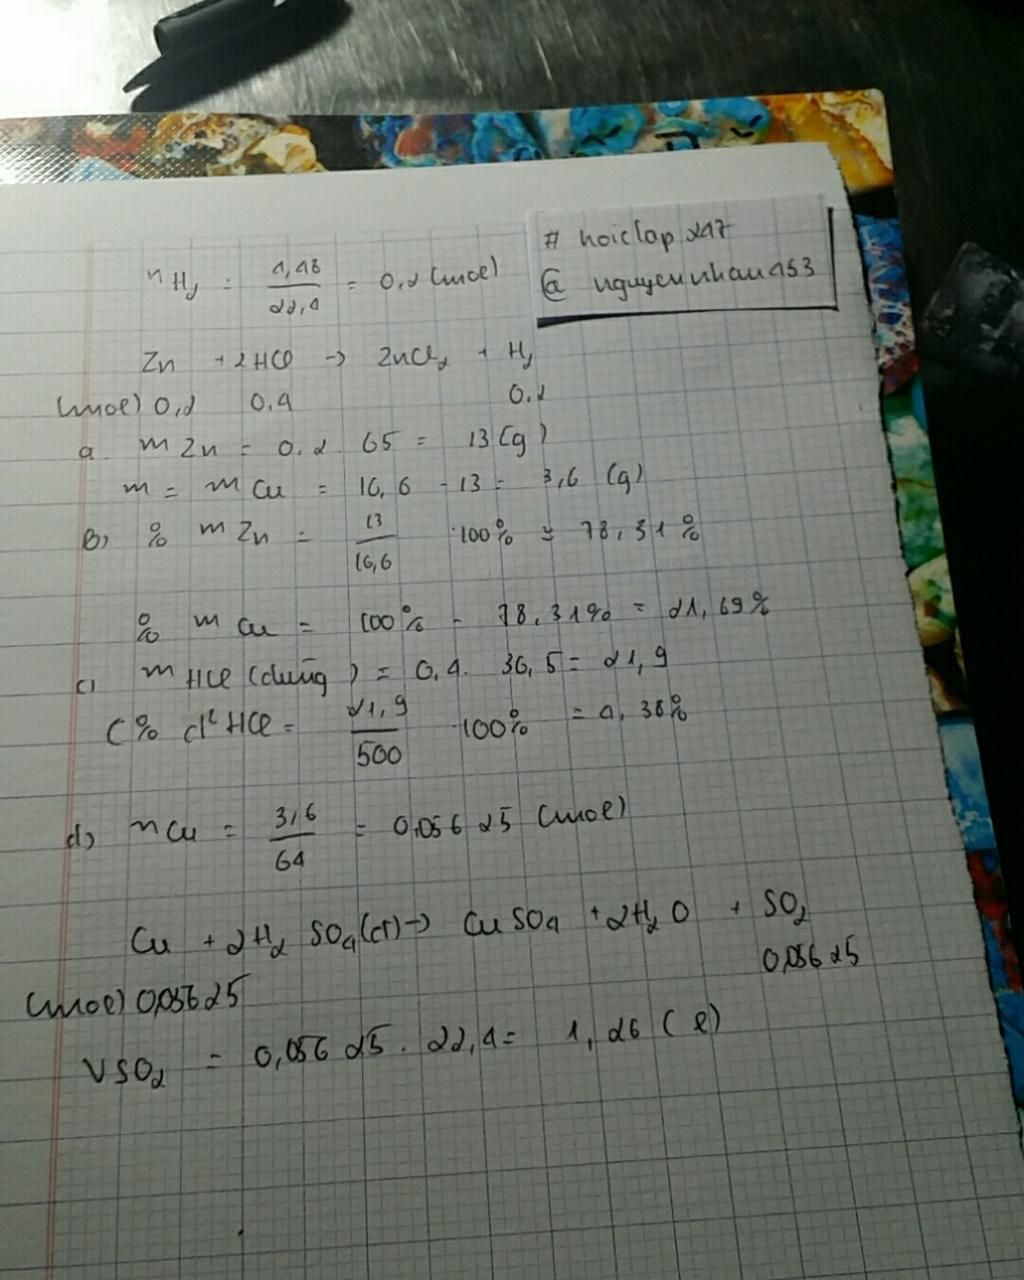 # hoiclap 247
@ nguyennhau453
nH2 = 4,48/22,4 = 0,2 (mol)
Zn + 2HCl → ZnCl2 + H2
(mol) 0,2 0,4 0,2
a. mZn = 0,2 . 65 = 13 (g)
m = mCu = 16,6 - 13 = 3,6 (g)
b) % mZn = 13/16,6 . 100% ≈ 78,31%
% mCu = 100% - 78,31% = 21,69%
c) mHCl (dùng) = 0,4 . 36,5 = 21,9
C% d² HCl = 21,9/500 . 100% = 4,38%
d) nCu = 3,6/64 = 0,05625 (mol)
Cu + 2H2SO4(đ) → CuSO4 + 2H2O + SO2
(mol) 0,05625 0,05625
VSO2 = 0,05625 . 22,4 = 1,26 (l)